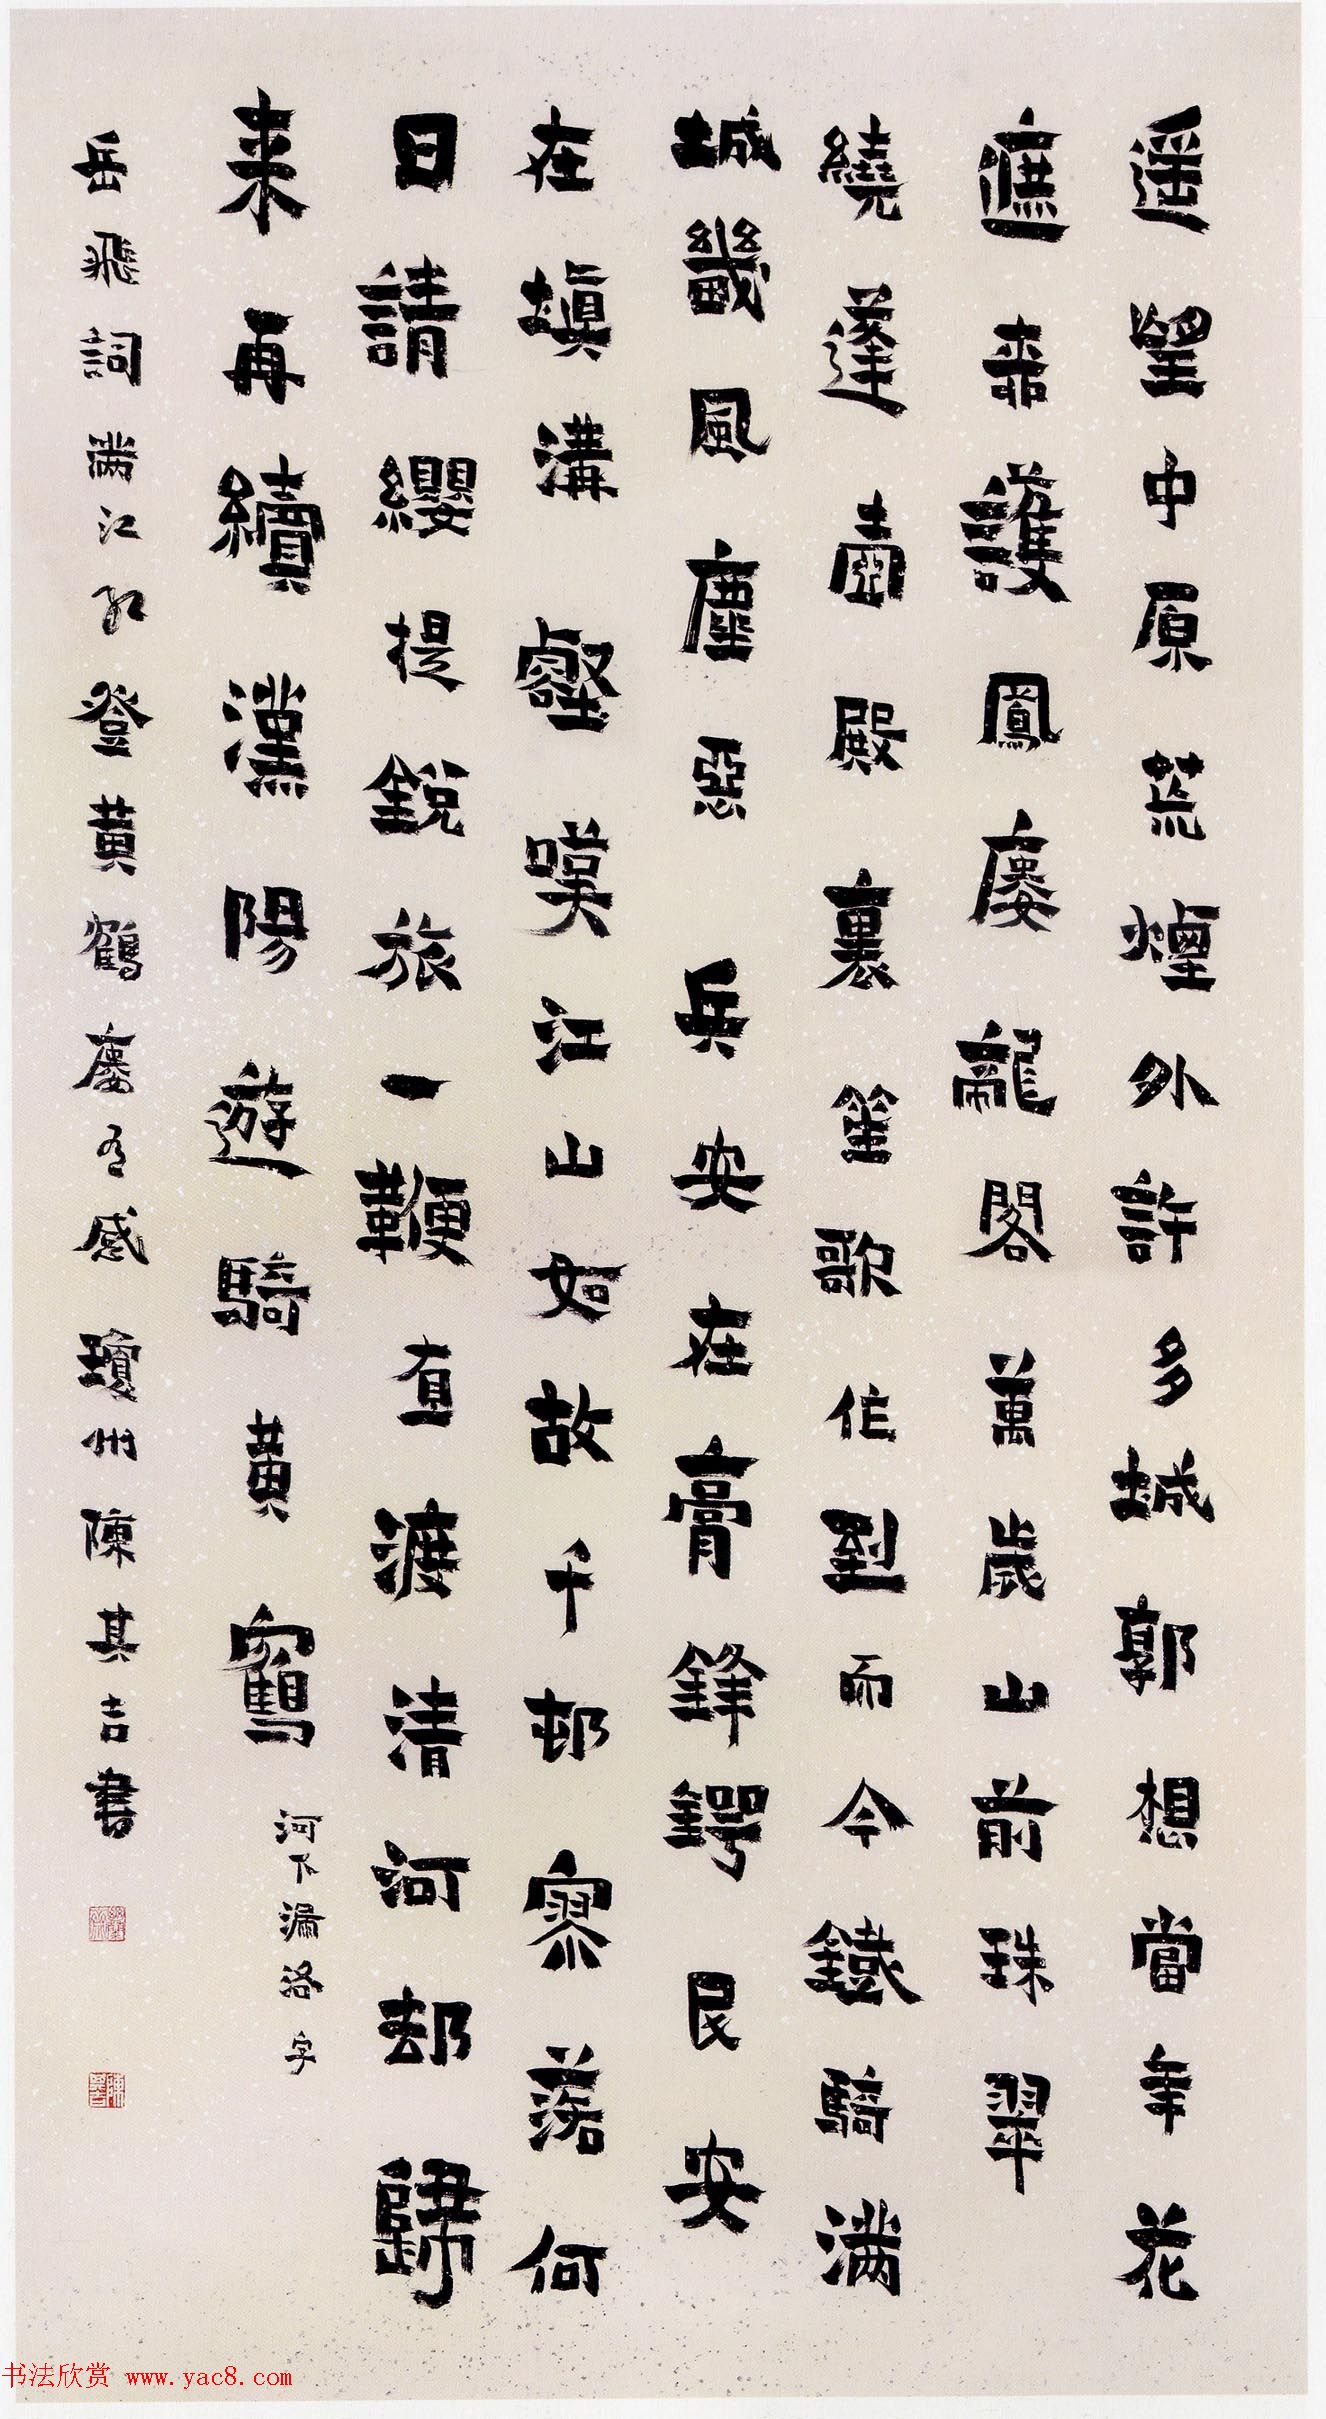 遥望中原荒煙外許多城郭想當年花
遮柳護鳳樓龍閣萬歲山前珠翠
繞蓬壺殿裏笙歌作到而今鐵騎滿
城畿風塵惡兵安在膏鋒鍔民安
在填溝壑嘆江山如故千邨寥落何
日請纓提銳旅一鞭直渡清河却歸
來再續漢陽遊騎黃鶴
河下漏洛字
岳飛詞滿江紅登黃鶴樓有感瓊州陳其吉書
书法欣赏 www.yac8.com